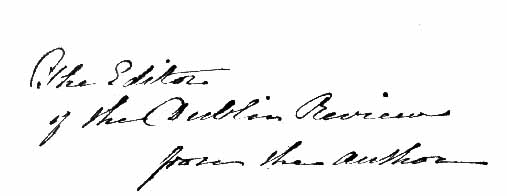 The Editor
of the Dublin Review
from the author